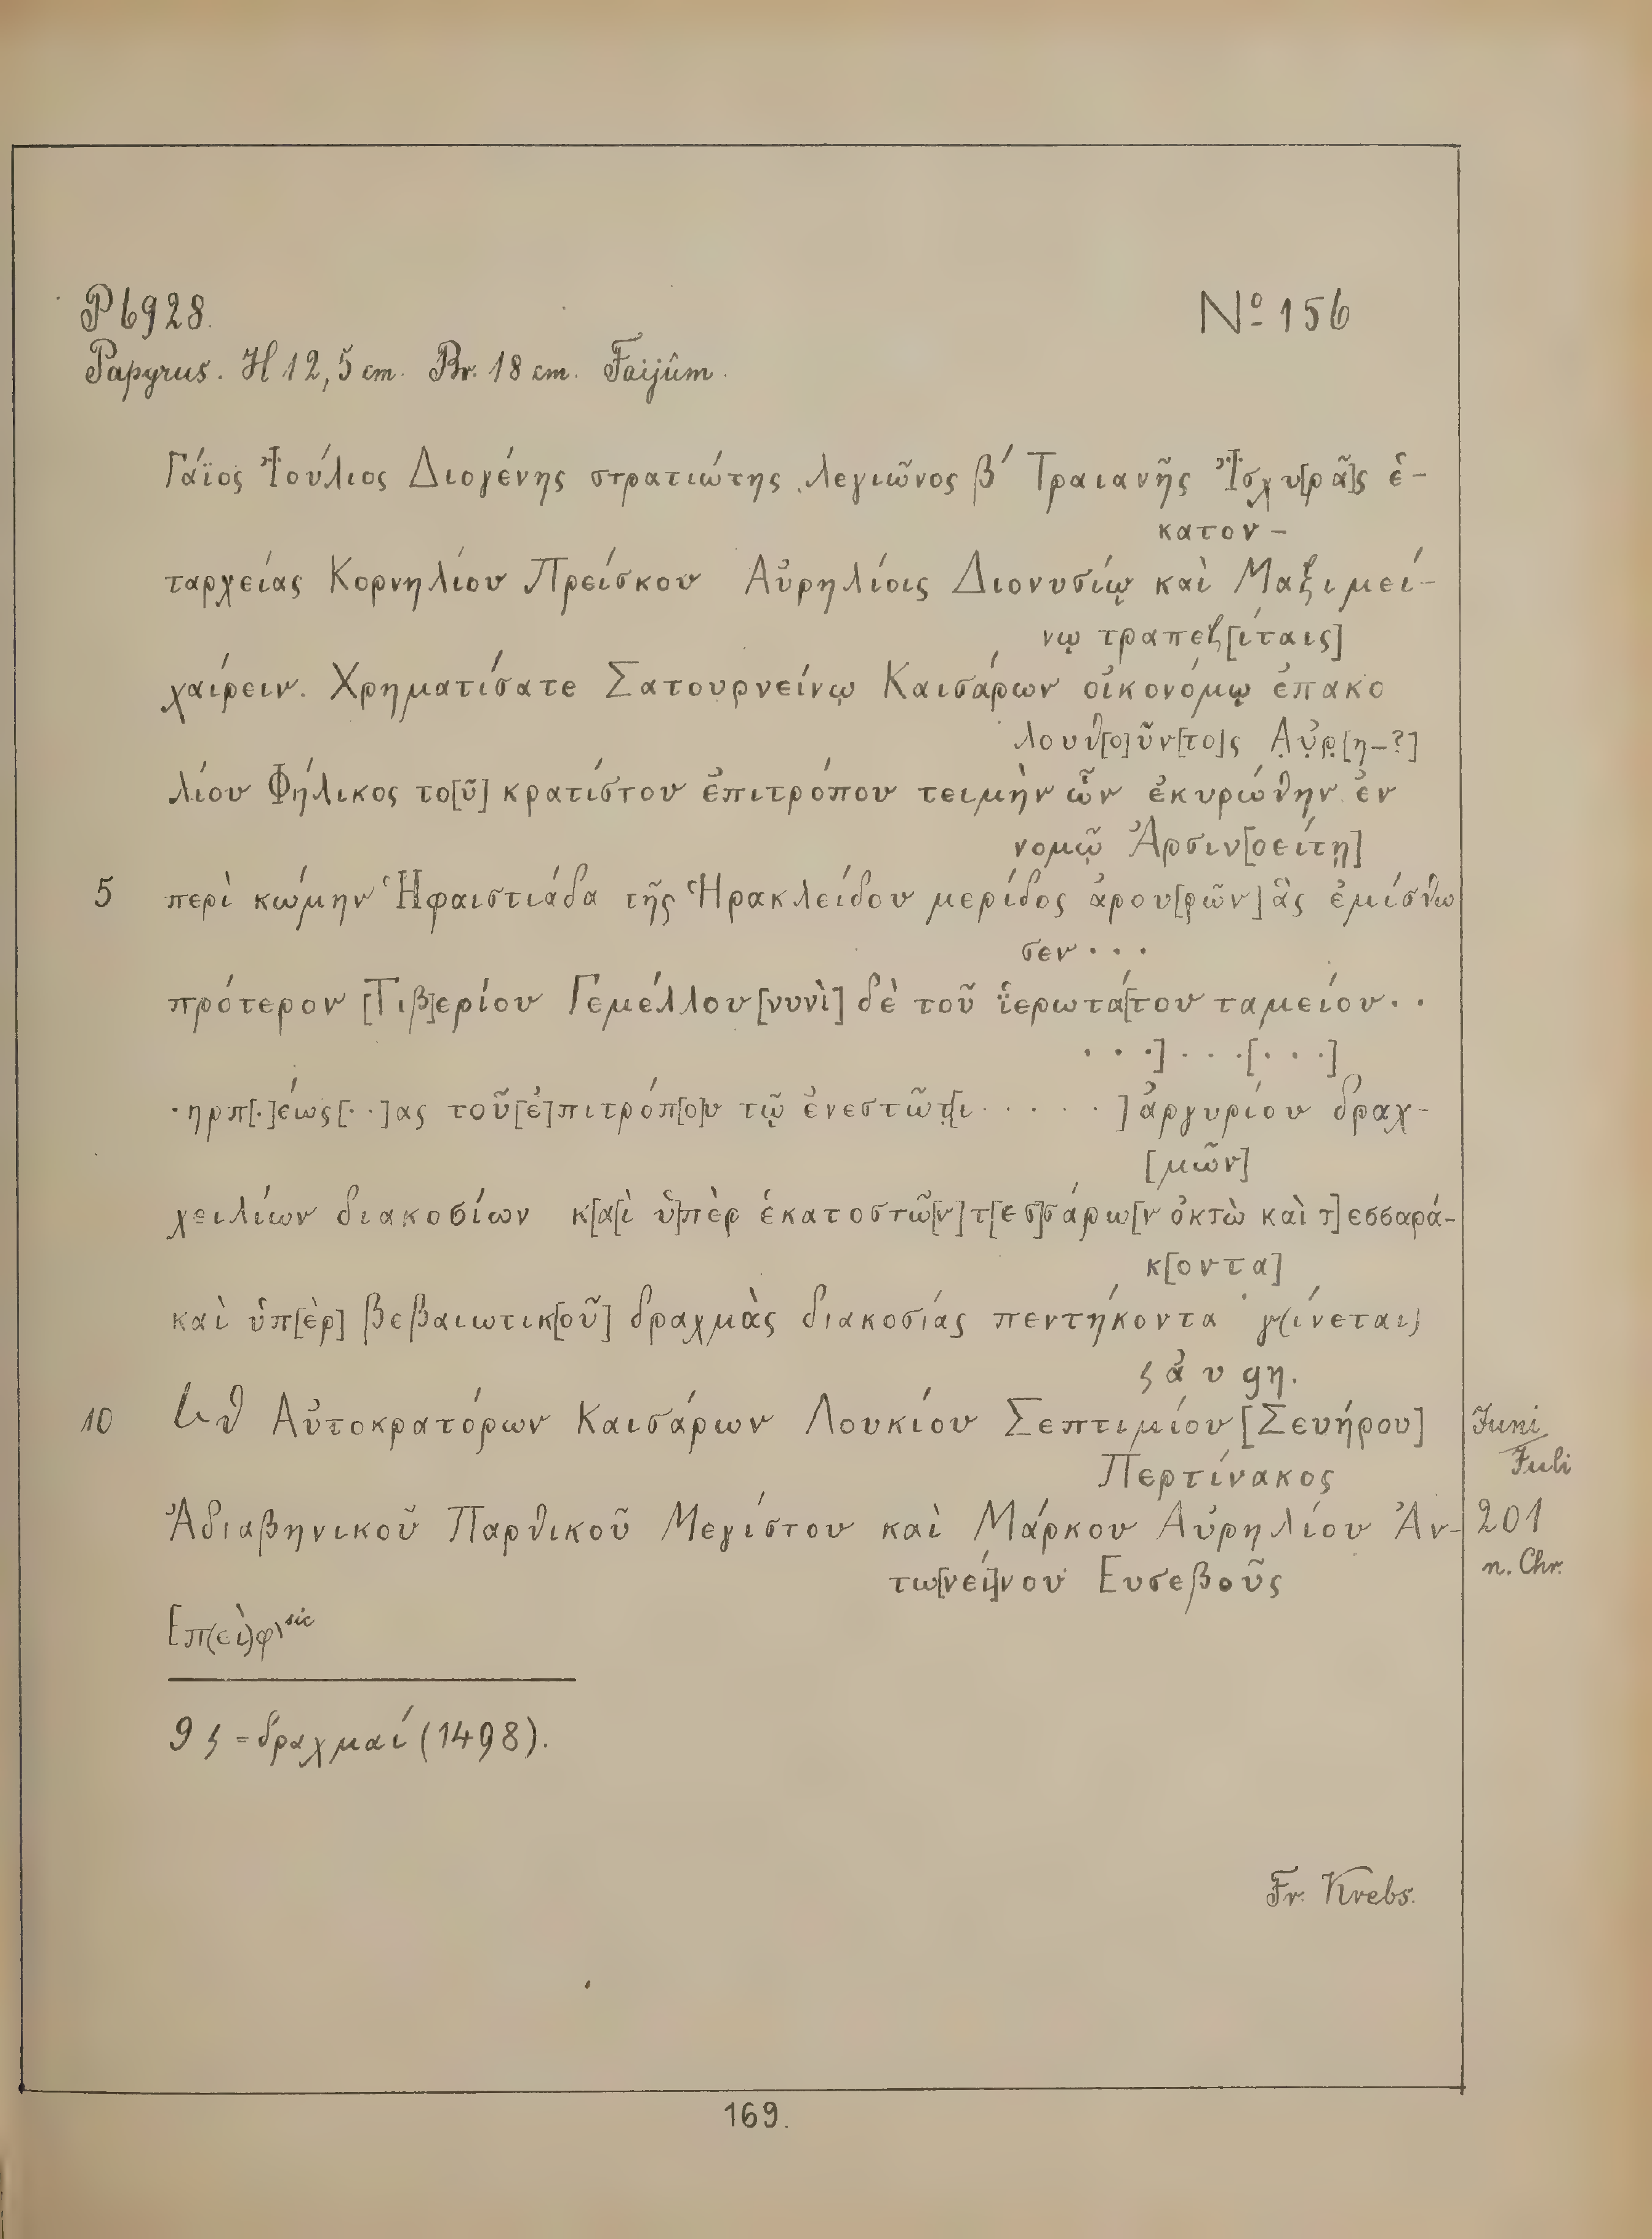 P 6928.
Nº 156
Papyrus. H 12,5 cm. Br. 18 cm. Faijûm.
Γάϊος Ἰούλιος Διογένης στρατιώτης λεγιῶνος β´ Τραιανῆς Ἰσχυ[ρᾶ]ς ἑ-
κατον-
ταρχείας Κορνηλίου Πρείσκου Αὐρηλίοις Διονυσίῳ καὶ Μαξιμεί-
νῳ τραπεζ[ίταις]
χαίρειν. Χρηματίσατε Σατουρνείνῳ Καισάρων οἰκονόμῳ ἐπακο
λουθ[ο]ῦν[το]ς Α̣ὐ̣ρ̣[η-?]
λίου Φήλικος το[ῦ] κρατίστου ἐπιτρόπου τειμὴν ὧν ἐκυρώθην ἐν
νομῷ Ἀρσιν[οείτῃ]
5 περὶ κώμην Ἡφαιστιάδα τῆς Ἡρακλείδου μερίδος ἀρου[ρῶν] ἃς ἐμίσθω
σεν · · ·
πρότερον [Τιβ]ερίου Γεμέλλου [νυνὶ] δὲ τοῦ ἱ̈ερωτά[του ταμείου · ·
· · ·] · · ·[· · ·]
·ηρπ[·]είως[· ·]ας τοῦ [ἐ]πιτρόπ[ο]υ τῷ ἐνεστῶτ̣[ι · · · · · ] ἀργυρίου δραχ-
[μῶν]
χειλίων διακοσίων κ[α]ὶ ὑ]πὲρ ἑκατοστῶ[ν] τ[εσ]σάρω[ν ὀκτὼ καὶ τ]εσσαρά-
κ[οντα]
καὶ ὑπ[ὲρ] βεβαιωτικ[οῦ] δραχμὰς διακοσίας πεντήκοντα γ(ίνεται)
ϛ ἀ υ ϙη.
10 Lθ Αὐτοκρατόρων Καισάρων Λουκίου Σεπτιμίου [Σευήρου]
Περτίνακος
Juni
Juli
Ἀδιαβηνικοῦ Παρθικοῦ Μεγίστου καὶ Μάρκου Αὐρηλίου Ἀν-
τω[νεί]νου Ευσεβοῦς
201
n. Chr.
Επ(εὶ)φ) sic
9 ϛ = δραχμαί (1498).
Fr. Krebs.
169.